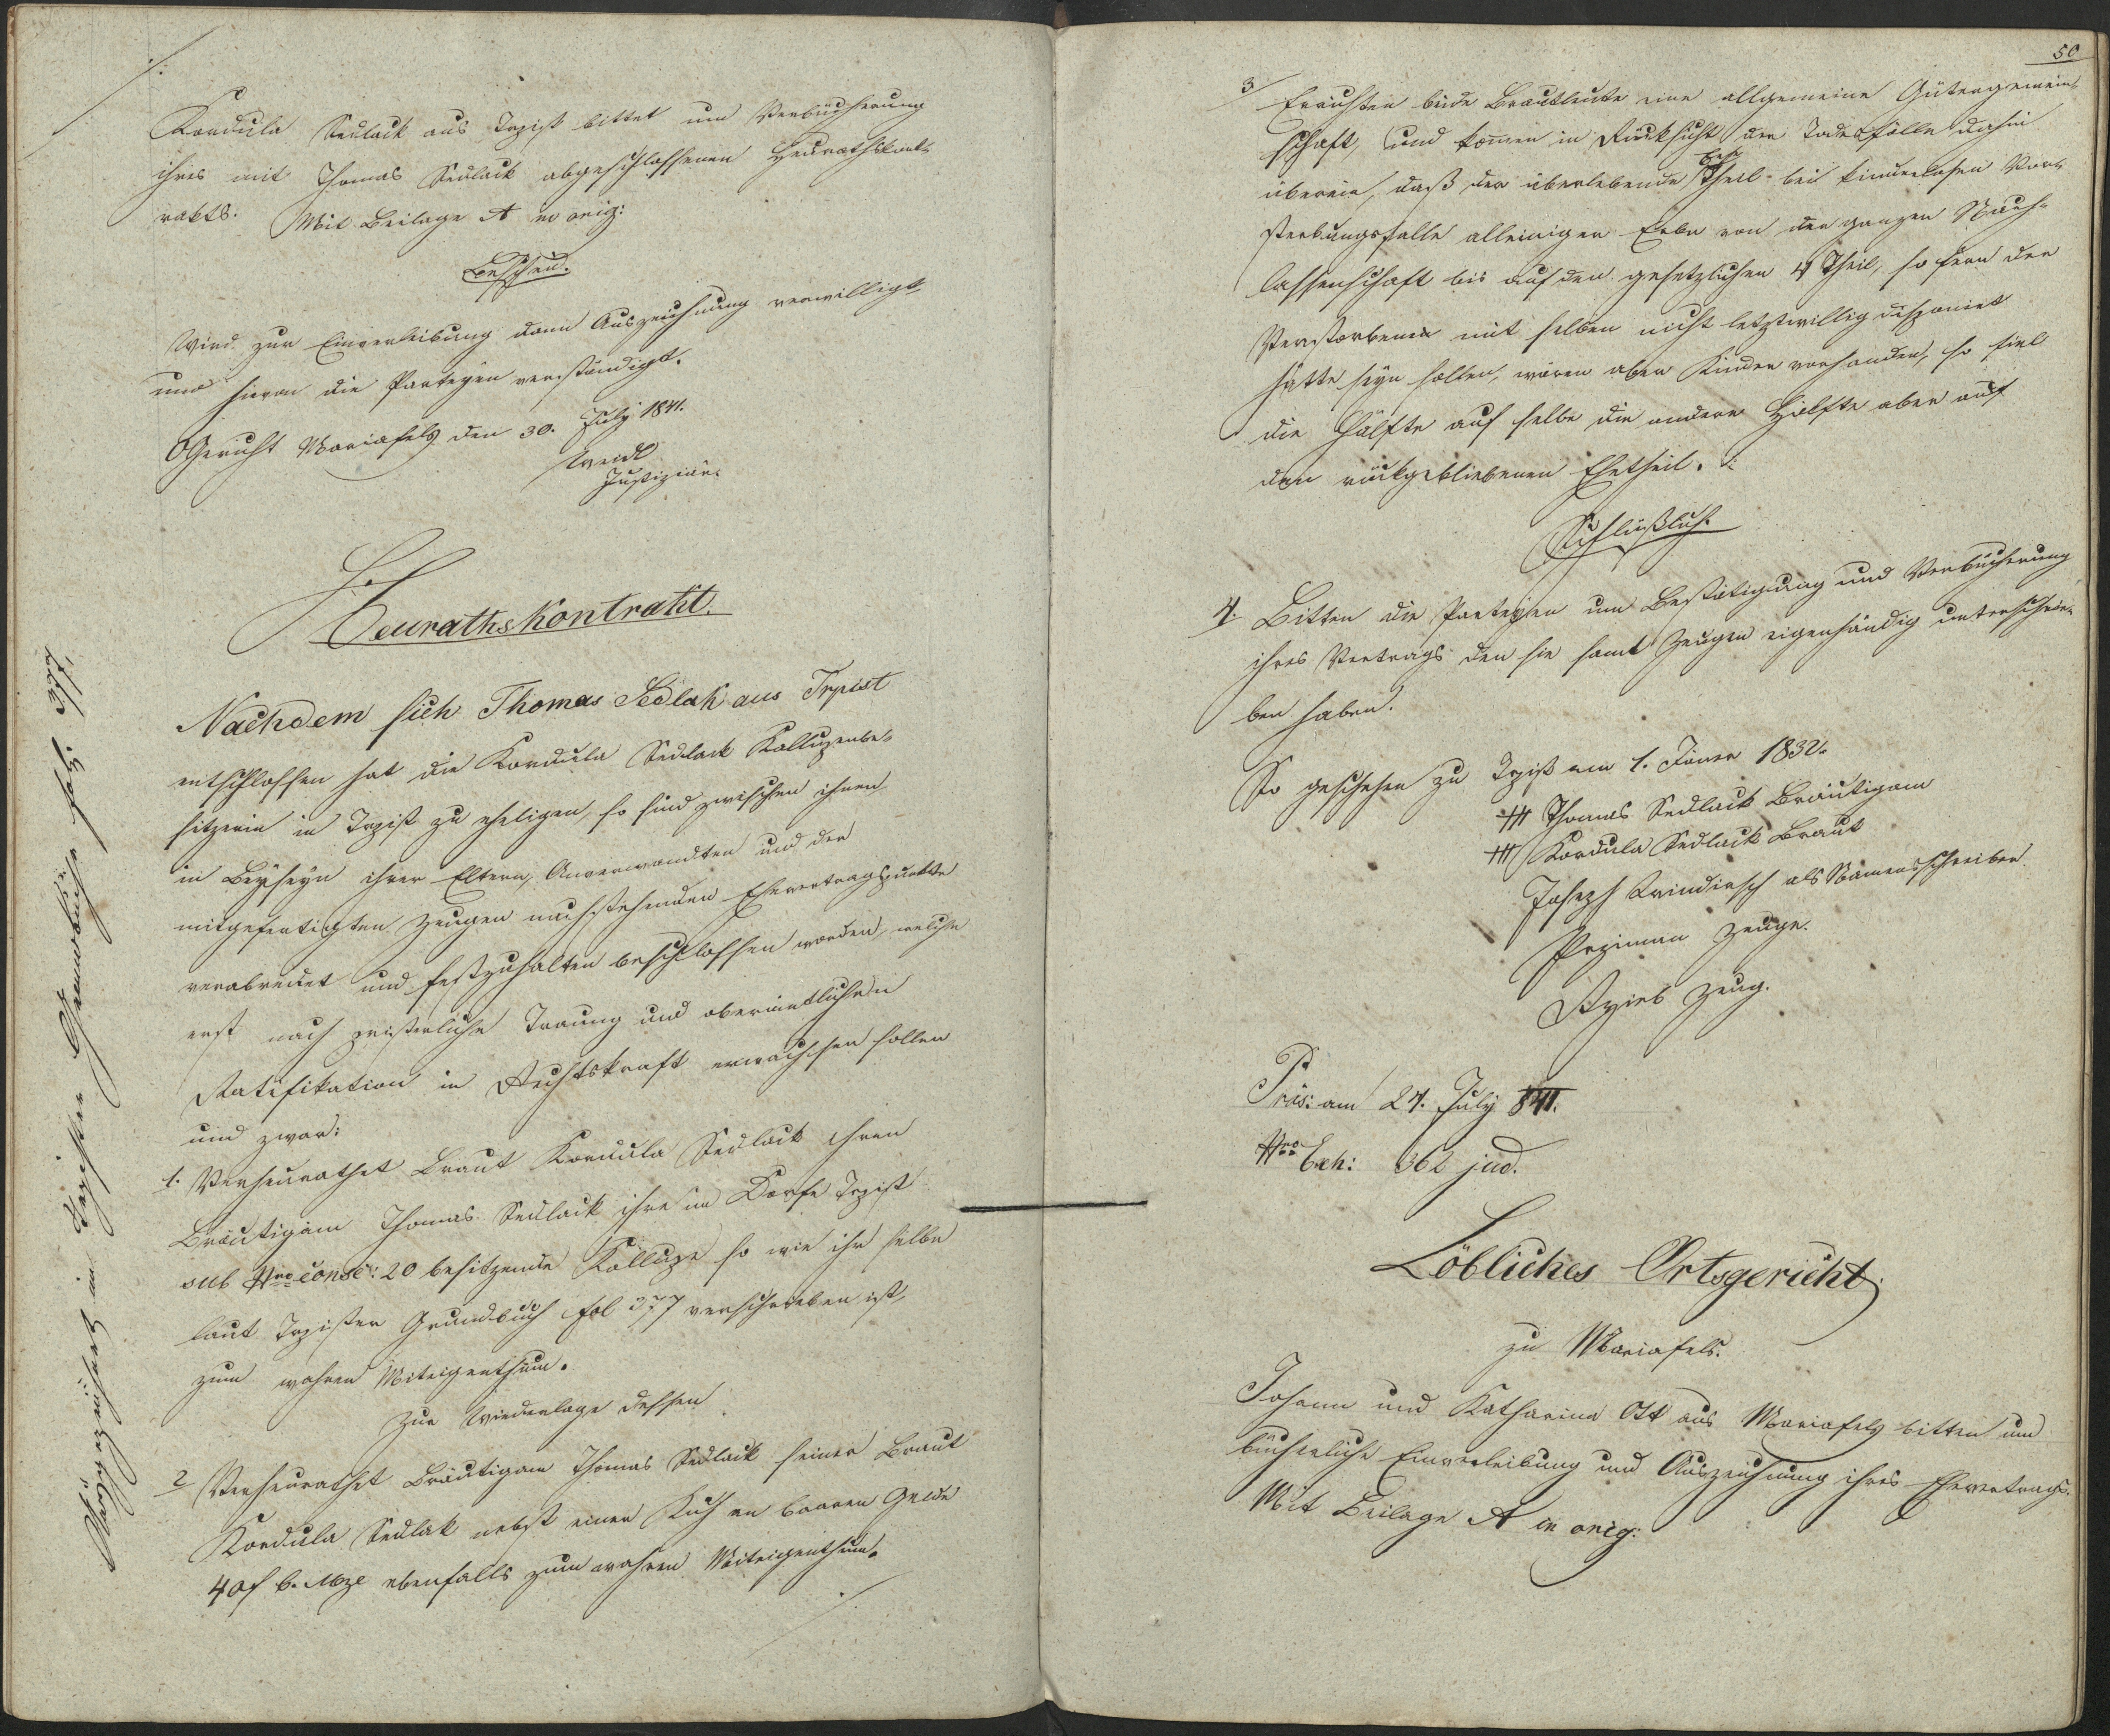 ./.
Kordula Sedlack aus Trpist bittet um Verbücherung
ihres mit Thomas Sedlack abgeschlossenen Heurathskont-
rakts. Mit Beilage A in orig:
Bescheid.
Wird zur Einverleibung dann Auszeichnung verwilligt
und hievon die Parteyen verständigt.
OGericht Mariafels den 30. July 1841.
Justiziär.
Heurathskontrakt.
Nachdem sich Thomas Sedlak aus Trpist
entschlossen hat die Kordula Sedlack Kalluzenbe-
sitzerin in Trpist zu eheligen, so sind zwischen ihnen
in Beyseyn ihrer Eltern, Anverwandten und der
mitgefertigten Zeugen nachstehenden Ehevertragspunkte
verabredet und festzuhalten beschlossen worden, welche
erst nach priesterliche Trauung und oberämtlichen
Ratifikation in Rechtskraft erwachsen sollen
und zwar:
1. Verheurathet Braut Kordula Sedlack ihren
Bräutigam Thomas Sedlack ihre im Dorfe Trpist
sub Nro consc: 20 besitzende Kalluze so wie ihr selbe
laut Trpister Grundbuch fol 377 verschrieben ist,
zum wahren Miteigenthum.
Zur Wiederlage dessen
2 Verheurathet Bräutigam Thomas Sedlack seiner Braut
Kordula Sedlak nebst einer Kuh an baaren Gelde
40f C. Mze ebenfalls zum wahren Miteigenthum.
./.
im Trpister Grundbuche fol: 377,
50
3 Errichten beide Brautleute eine allgemeine Gütergemein-
schaft, und komen in Rücksicht der Todesfälle dahin
überein, daß der überlebende Theil bei kinderlosen Vor-
sterbungsfalle alleiniger Erbe von der ganzen Nach-
lassenschaft bis auf den gesetzlichen 4 Theil, so fern der
Verstorbene mit selben nicht letztwillig disponiret
hätte seyn sollen, wären aber Kinder vorhanden, so fiel
die Hälfte auf selbe die andere Hälfte aber auf
den rückgebliebenen Ehetheil.
Schlüßlich
4. Bitten die Parteyen um Bestätigung und Verbücherung
ihres Vertrags den sie samt Zeugen eigenhändig unterschrie-
ben haben.
So geschehen zu Trpist am 1. Jäner 1832.
+++ Thomas Sedlack Bräutigam
+++ Kordula Sedlack Braut
Joseph Windirsch als Namensschreiber
Zeuge.
Zeug.
Präs: am 24. July 841.
Nro Exh: 362 jud.
Löbliches Ortsgericht
zu Mariafels.
Johann und Katharina Ott aus Mariafels bitten um
bücherliche Einverleibung und Auszeichnung ihres Ehevertrags.
Mit Beilage A in orig: